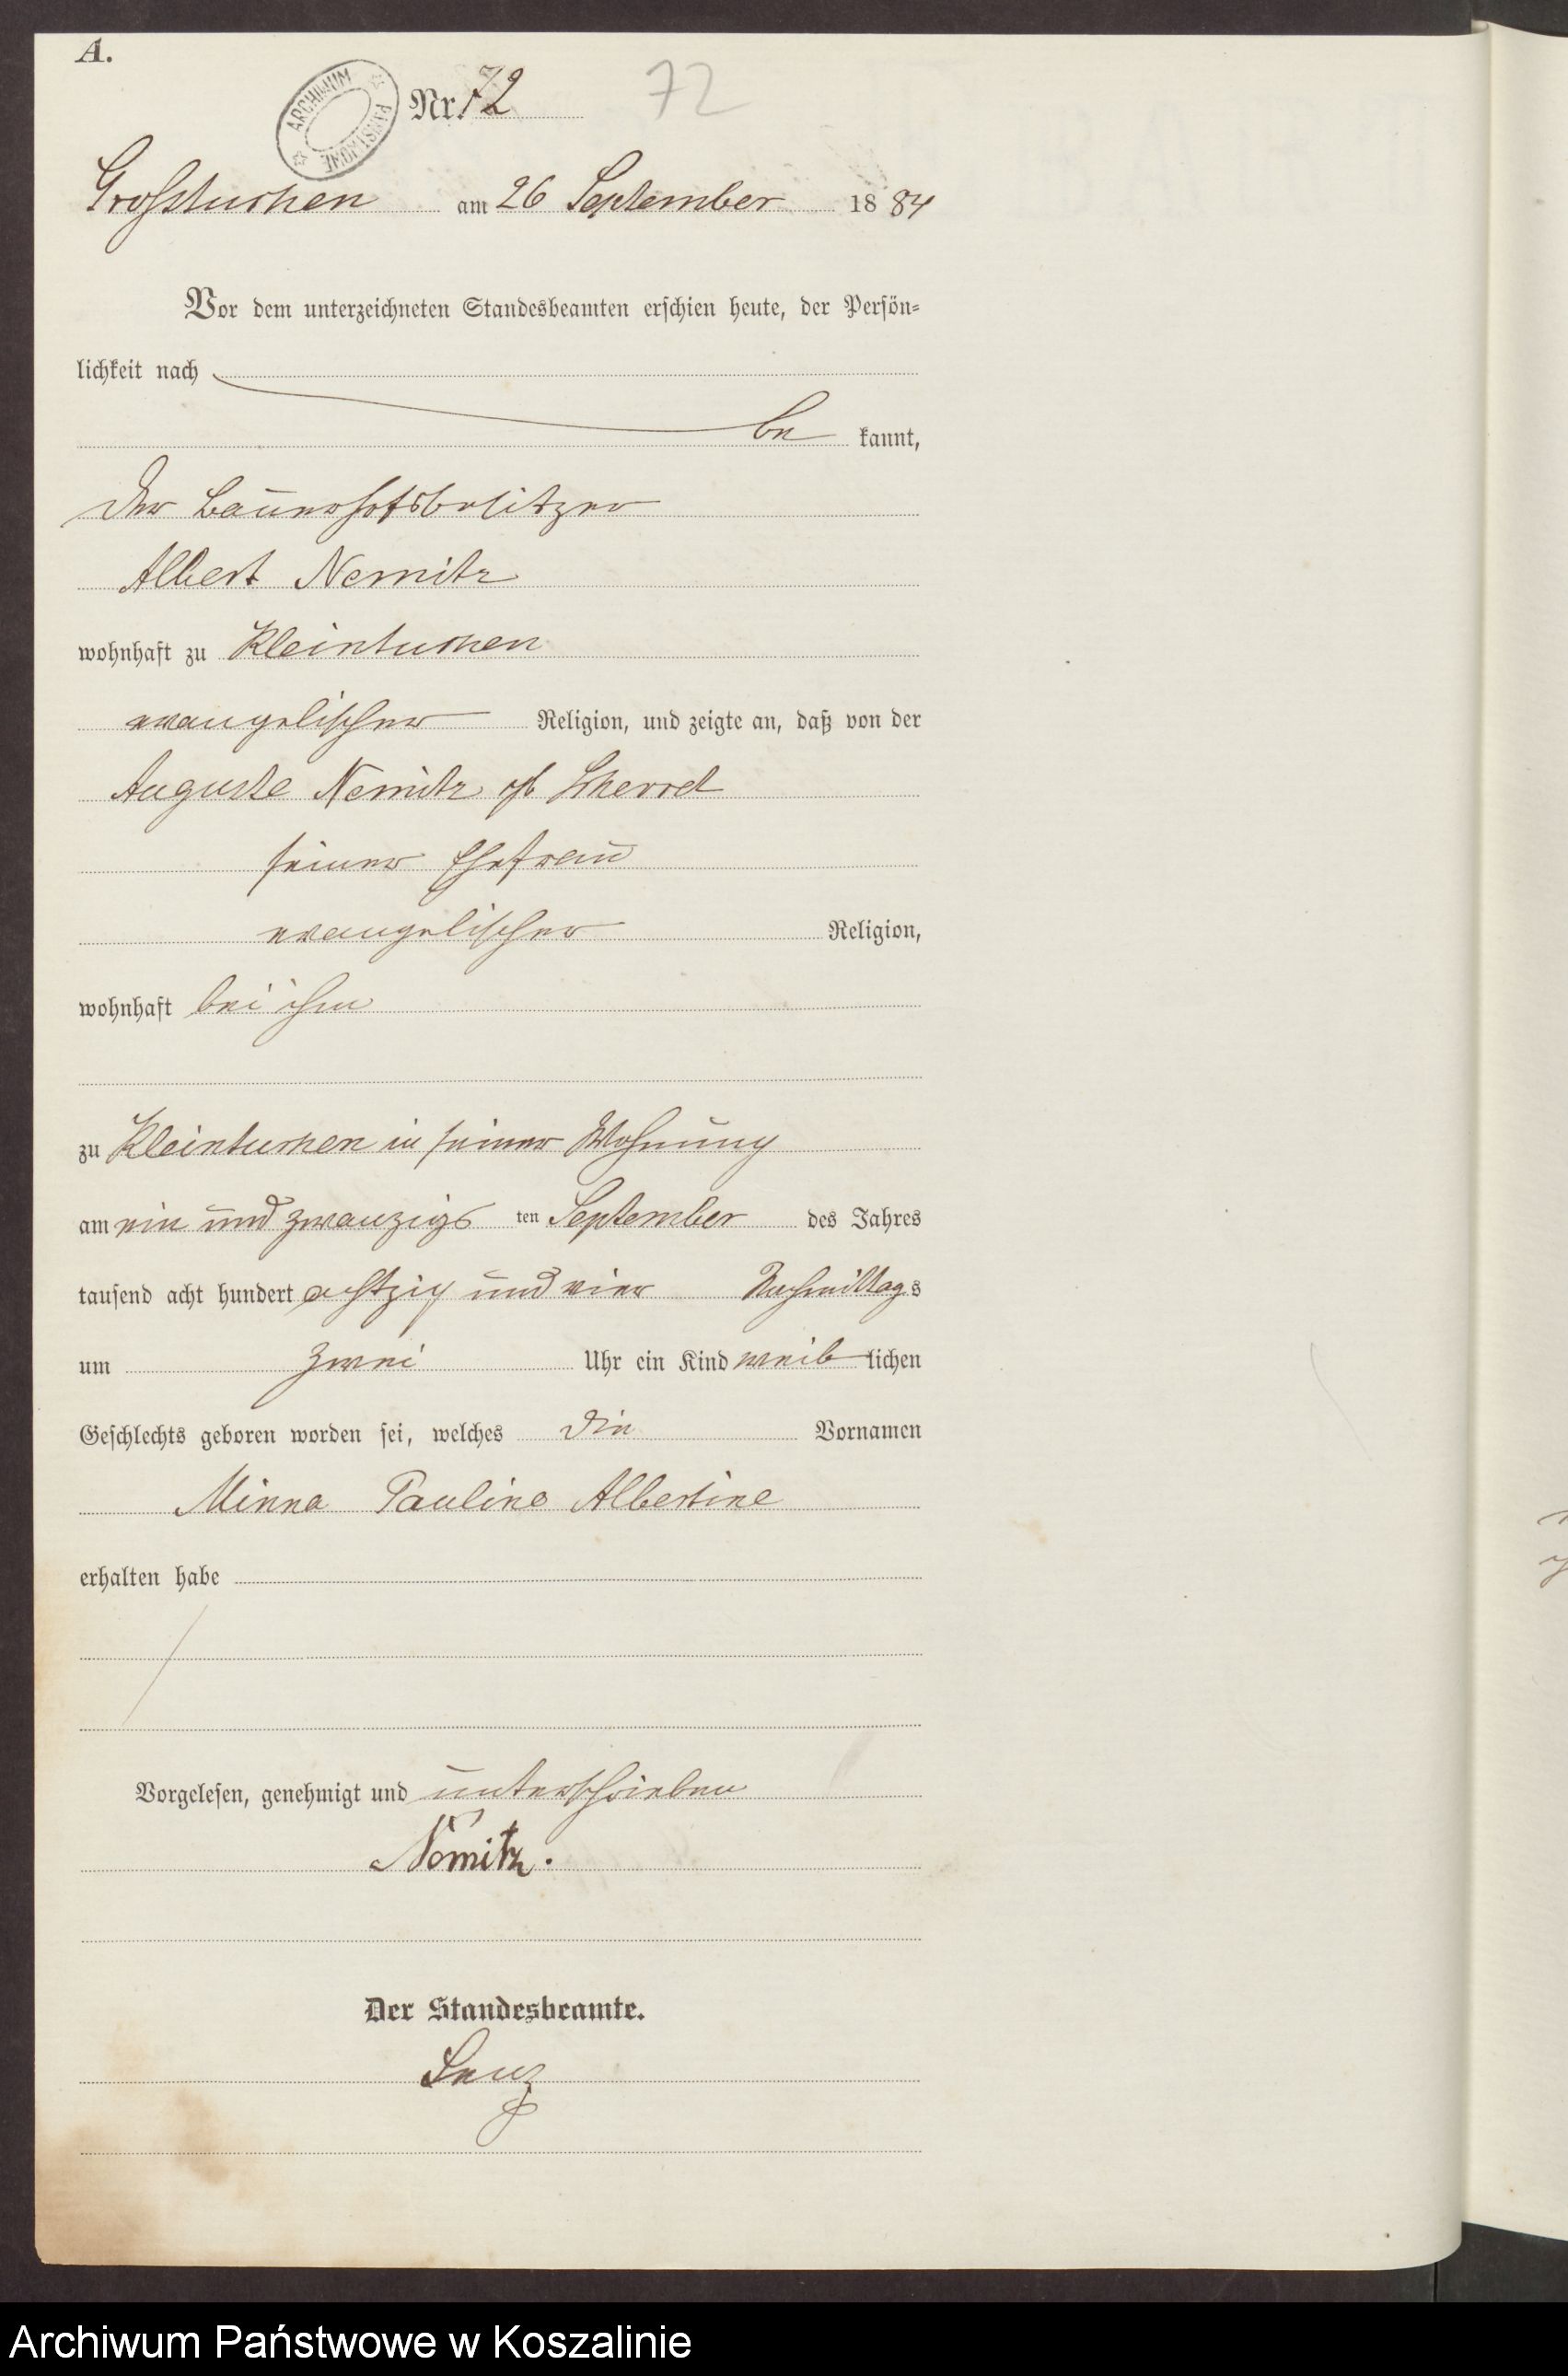 A.
ARCHIWUM PAŃSTWOWE
Nr. 72 72
Grosstuchen am 26 September 1884
Vor dem unterzeichneten Standesbeamten erschien heute, der Persön=
lichkeit nach
be kannt,
der Bauerhofsbesitzer
Albert Nemitz
wohnhaft zu Kleintuchen
evangelischer Religion, und zeigte an, daß von der
Auguste Nemitz geb
seiner Ehefrau
evangelischer Religion,
wohnhaft bei ihm
zu Kleintuchen in seiner Wohnung
am ein und zwanzigs ten September des Jahres
tausend acht hundert achtzig und vier Nachmittags
um zwei Uhr ein Kind weib lichen
Geschlechts geboren worden sei, welches die Vornamen
Minna Pauline Albertine
erhalten habe
Vorgelesen, genehmigt und unterschrieben
Nemitz.
Der Standesbeamte.
Lenz
Archiwum Państwowe w Koszalinie